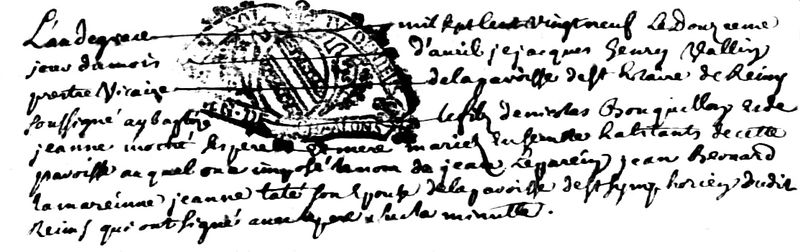 L'an de grace mil sept cent vingt neuf le Douzieme
jour du mois d'avril je jacques henry Vallin
prestre Vicaire de la paroisse de st hilaire de Reims
soussigné ay baptisé le fils de nicolas Bouquillon et de
jeanne moché ses pere et mere mariez Ensemble habitants de cette
paroisse auquel on a imposé le nom de jean Le parein jean Bernard
La mareinne jeanne taté son Epouse de la paroisse de st symphorien dudit
Reims qui ont signés avec le pere sur la minutte.